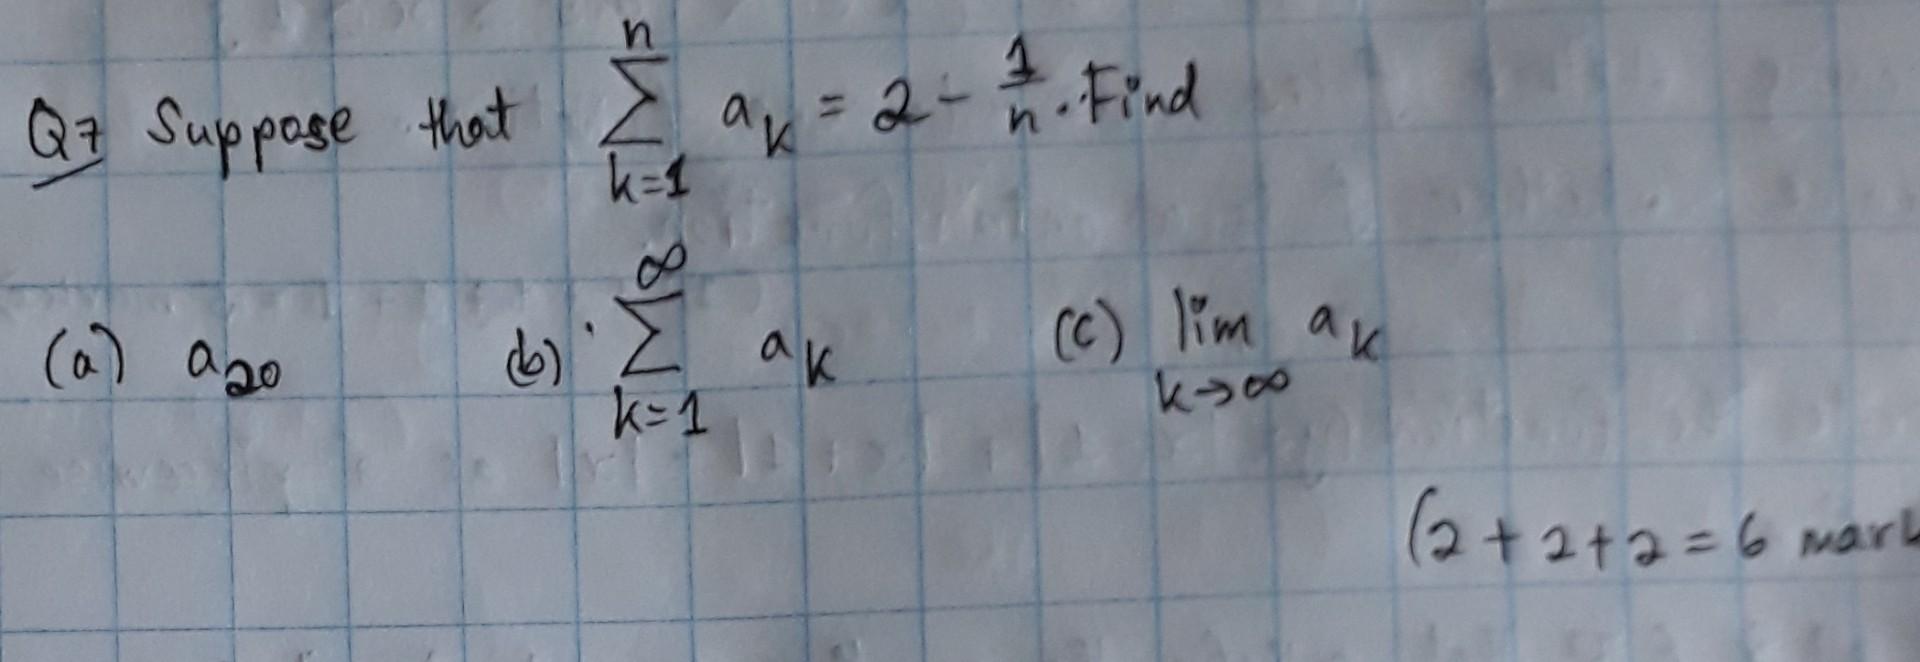 Q7 Suppose that $\sum_{k=1}^{n} a_k = 2 - \frac{1}{n}$. Find
(a) $a_{20}$ (b) $\sum_{k=1}^{\infty} a_k$ (c) $\lim_{k \to \infty} a_k$
(2 + 2 + 2 = 6 mark